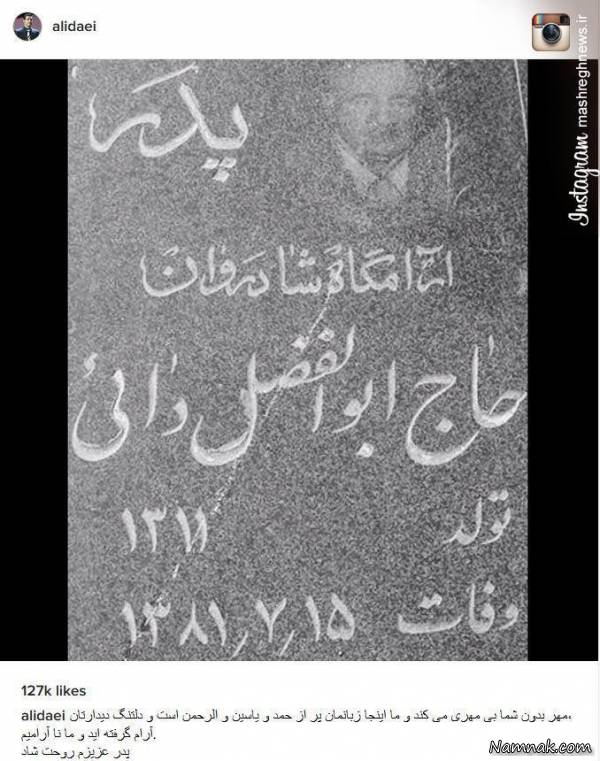 alidaei
Instagram mashreghnews.ir
پدر
آرامگاه شادروان
حاج ابوالفضل دائی
تولد ۱۳۱۱
وفات ۱۳۸۱٫۷٫۱۵
127k likes
alidaei مهر بدون شما بی مهری می کند و ما اینجا زبانمان پر از حمد و یاسین و الرحمن است و دلتنگ دیدارتان،
آرام گرفته اید و ما نا آرامیم.
پدر عزیزم روحت شاد
Namnak.com